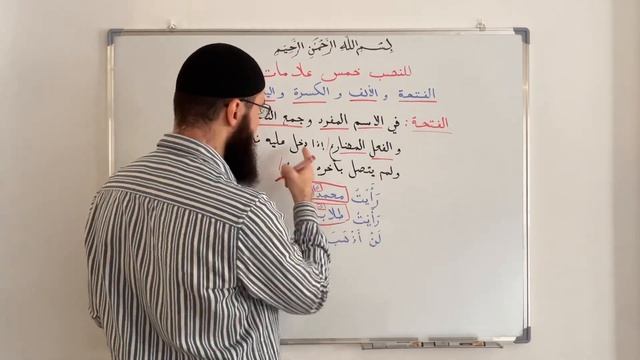 بسم الله الرحمن الرحيم
للنصب خمس علامات
الفتحة و الألف و الكسرة و
الفتحة : في الاسم المفرد و جمع
و الفعل المضارع إذا دخل عليه
ولم يتصل بآخره
رَأَيْتُ محمدًا
رَأَيْتُ طلابًا
لَنْ أَذْهَبَ